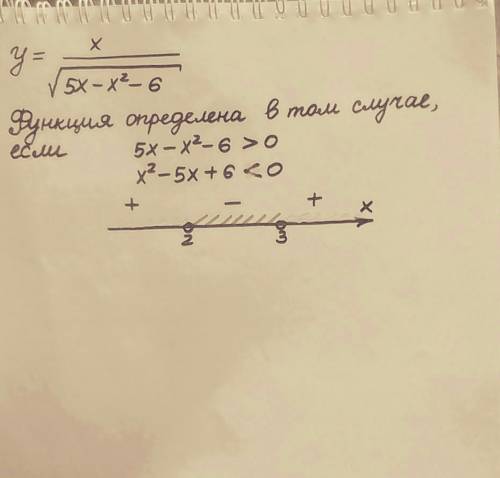 y = x / √(5x - x² - 6)
Функция определена в том случае,
если 5x - x² - 6 > 0
x² - 5x + 6 < 0
+ - + x
2 3